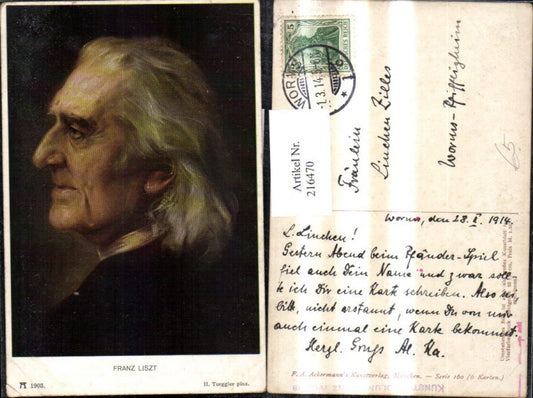 FRANZ LISZT
1903.
H. Torggler pinx.
WORMS
1.3.14.
5
DEUTSCHES REICH
Artikel Nr.
216470
Fräulein
Linchen Zilles
Worms-Pfiffligheim
Worms, den 28. II. 1914.
L. Linchen!
Gestern Abend beim Pfänder-Spiel
fiel auch Dein Name und zwar soll-
te ich Dir eine Karte schreiben. Also sei
bitte nicht erstaunt, wenn Du von mir
auch einmal eine Karte bekommst.
Herzl. Grüße
F. A. Ackermann's Kunstverlag, München. — Serie 160 (6 Karten.)